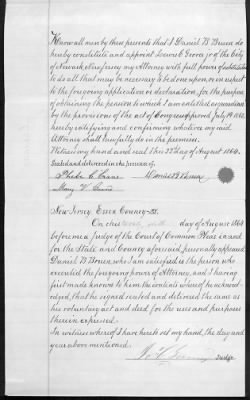 Know all men by these presents that I Daniel B Bruen do
hereby constitute and appoint Lewis C Grover jr of the City
of Newark New Jersey my Attorney with full power of substitution
to do all that may be necessary to be done upon, or in respect
to the foregoing application or declaration, for the purpose
of obtaining the pension to which I am entitled as guardian
by the provisions of the act of Congress approved July 14 1862,
hereby ratifying and confirming whatever my said
Attorney shall lawfully do in the premises.
Witness my hand and seal this 22d day of August 1864.
Sealed and delivered in the presence of
Phebe C. Crane
Daniel B Bruen
Mary
New Jersey Essex County SS.
On this day of August 1864
before me a Judge of the Court of Common Pleas in and
for the State and County aforesaid personally appeared
Daniel B Bruen who I am satisfied is the person who
executed the foregoing power of Attorney, and I having
first made known to him the contents where of he acknow-
ledged, that he signed sealed and delivered the same as
his voluntary act and deed for the uses and purposes
therein expressed.
In witness whereof I have hereto set my hand, the day and
year above mentioned.
Judge